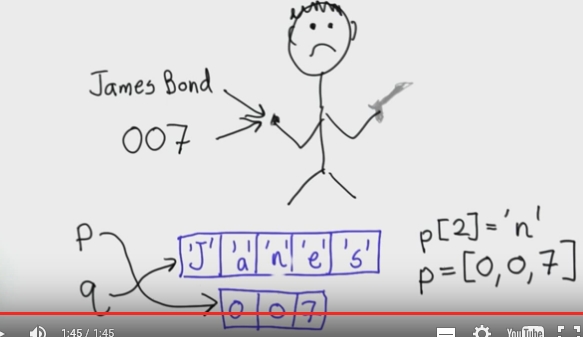 James Bond
007
p
q
'J' 'a' 'n' 'e' 's'
0 0 7
p[2]='n'
p=[0,0,7]
1:45 / 1:45
YouTube